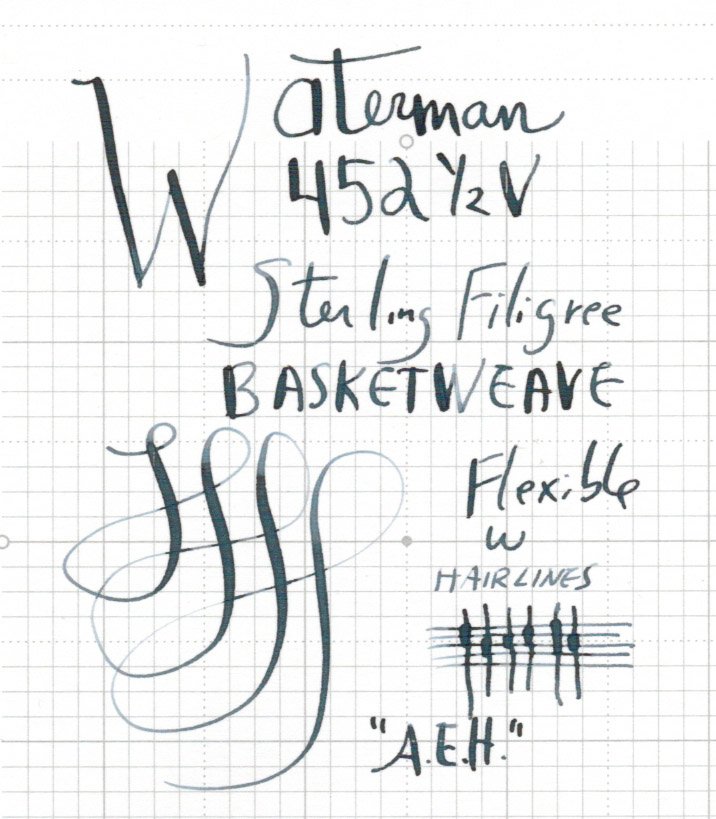 Waterman
452½V
Sterling Filigree
BASKETWEAVE
Flexible
w
HAIRLINES
"A.E.H."